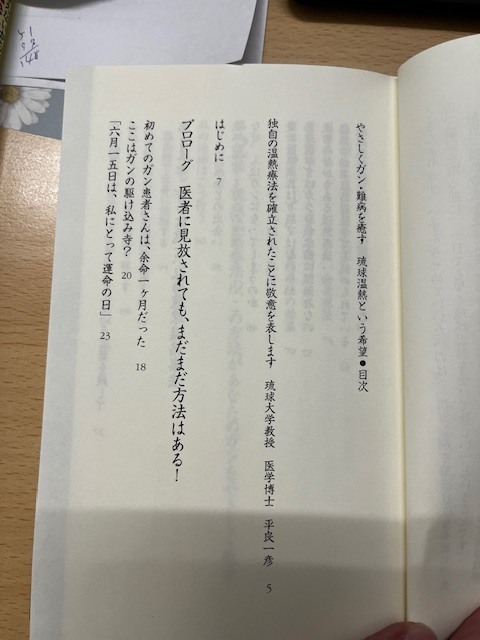 やさしくガン・難病を癒す 琉球温熱という希望●目次
独自の温熱療法を確立されたことに敬意を表します 琉球大学教授 医学博士 平良一彦 5
はじめに 7
プロローグ 医者に見放されても、まだまだ方法はある!
初めてのガン患者さんは、余命一ヶ月だった 18
ここはガンの駆け込み寺? 20
「六月一五日は、私にとって運命の日」 23